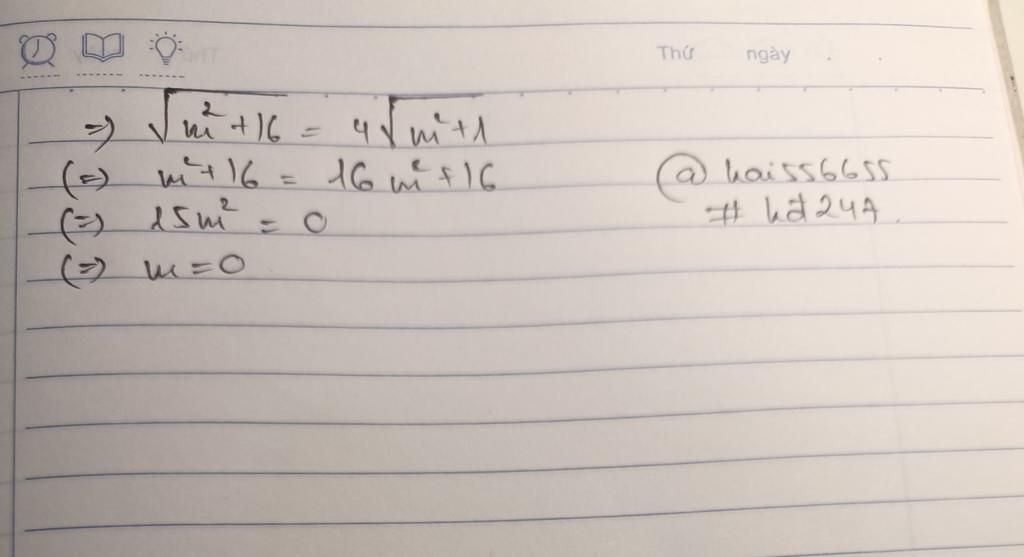 Thứ ngày . .
=) √m²+16 = 4√m²+1
(=) m²+16 = 16m²+16
(=) 15m² = 0
(=) m=0
@hai556655
# hd247.